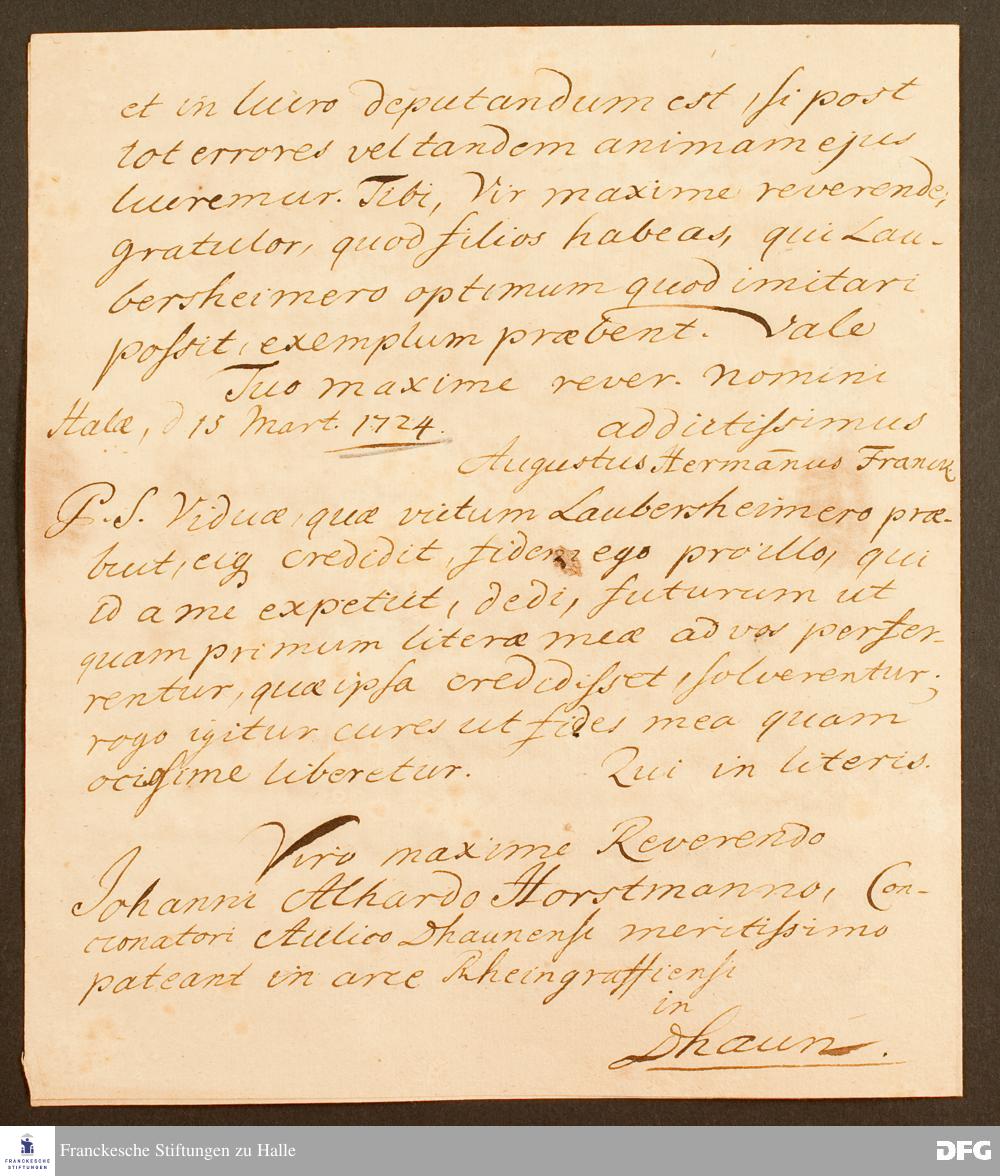 et in lucro deputandum est, si post
tot errores vel tandem animam ejus
lucremur. Tibi, Vir maxime reverende,
gratulor, quod filios habeas, qui Lau-
bersheimero optimum quod imitari
possit, exemplum præbent. Vale
Tuo maxime rever. nomini
Halæ, d 15 Mart. 1724.
addictissimus
Augustus Hermānus Franck
P.S. Viduæ, quæ victum Laubersheimero præ-
buit, eiq credidit, fidem ego pro illo, qui
id a me expetiit, dedi, futurum ut
quam primum literæ meæ ad vos perfer-
rentur, quæ ipsa credidisset, solverentur;
rogo igitur cures ut fides mea quam
ocissime liberetur. Qui in literis.
Viro maxime Reverendo
Johanni Alhardo Horstmanno, Con-
cionatori Aulico Dhaunensi meritissimo
pateant in arce Rheingraffiensi
in
Dhaun.
FRANCKESCHE
STIFTUNGEN
Franckesche Stiftungen zu Halle
DFG